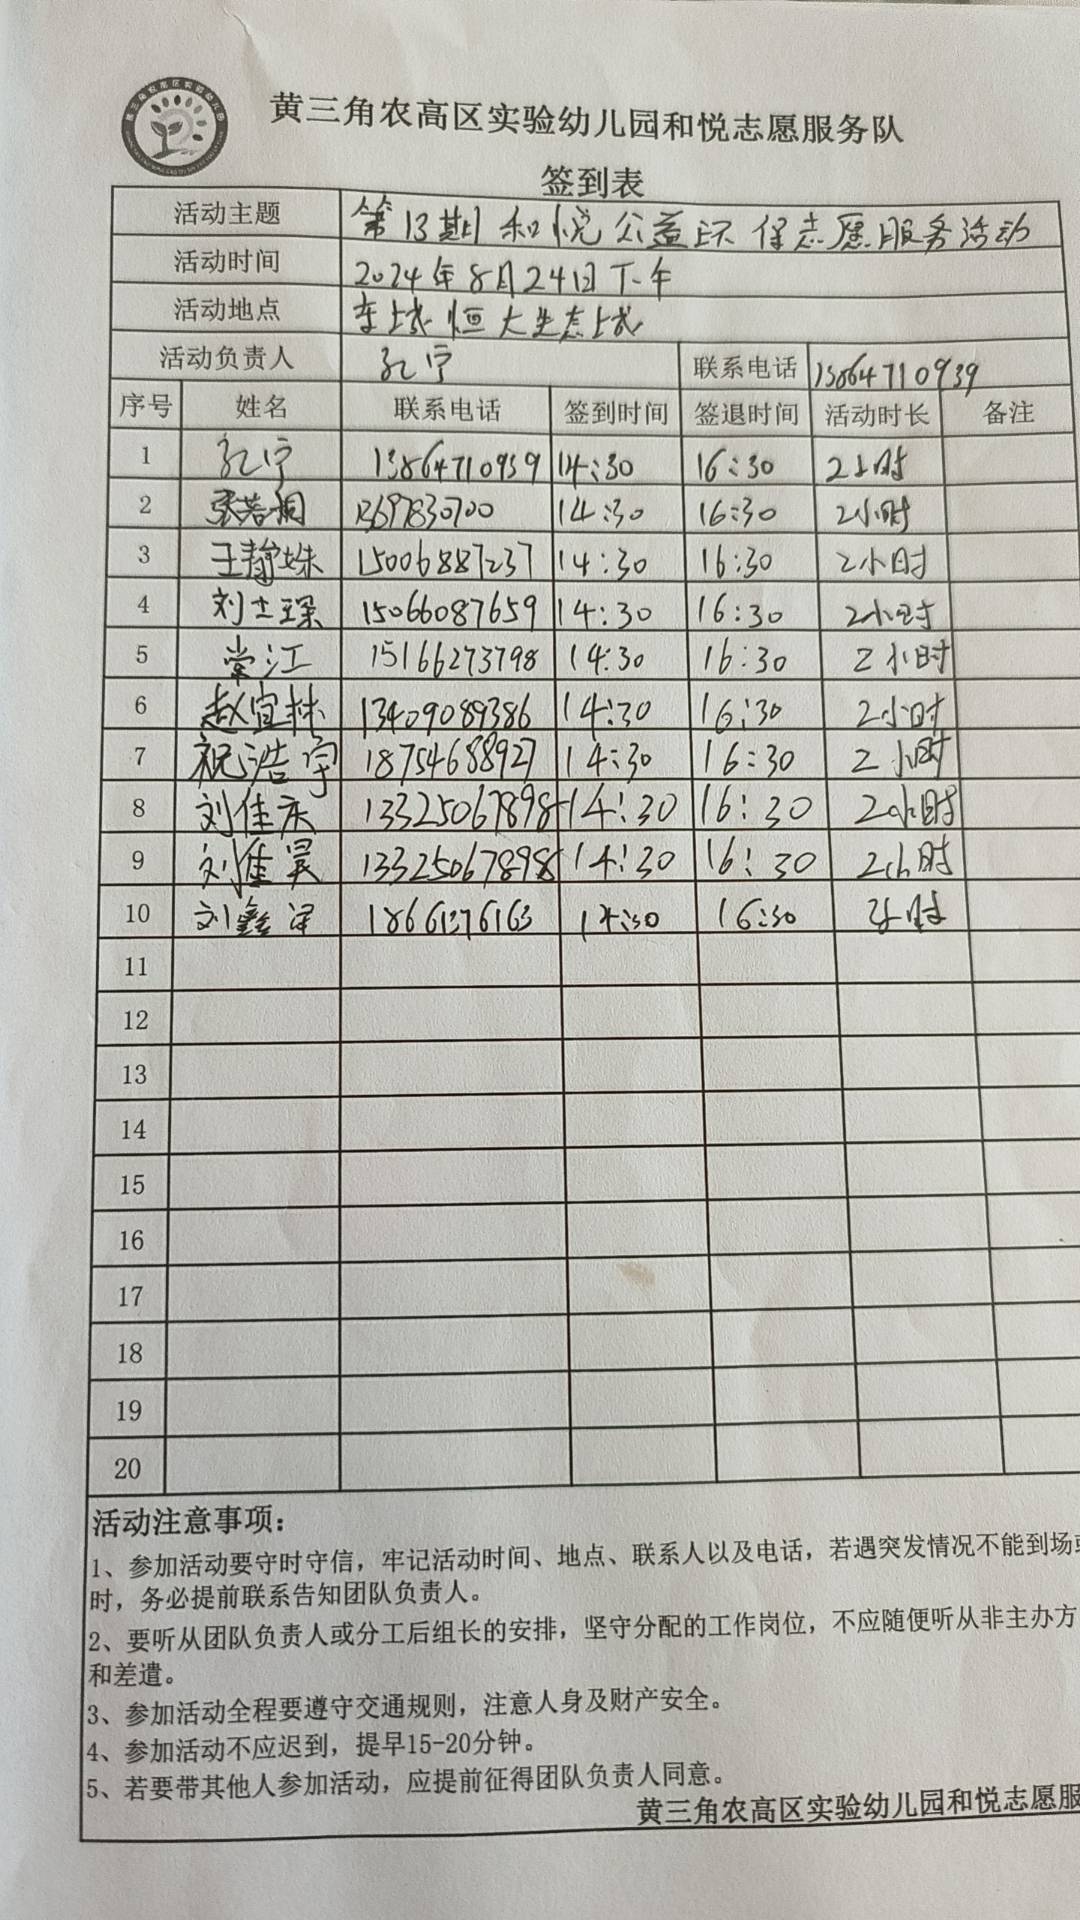 黄三角农高区实验幼儿园和悦志愿服务队
签到表
活动主题 第13期和悦公益环保志愿服务活动
活动时间 2024年8月24日下午
活动地点 东城恒大生态城
活动负责人 孔宁 联系电话 13864710939
序号 姓名 联系电话 签到时间 签退时间 活动时长 备注
1 孔宁 13864710939 14:30 16:30 2小时
2 张若桐 14:30 16:30 2小时
3 王静姝 15006887237 14:30 16:30 2小时
4 刘士琛 15066087659 14:30 16:30 2小时
5 常江 15166273798 14:30 16:30 2小时
6 赵宜林 13409089386 14:30 16:30 2小时
7 祝浩宇 18754688927 14:30 16:30 2小时
8 刘佳庆 13325067898 14:30 16:30 2小时
9 刘佳昊 13325067898 14:30 16:30 2小时
10 刘鑫泽 18661376163 14:30 16:30 2小时
11
12
13
14
15
16
17
18
19
20
活动注意事项：
1、参加活动要守时守信，牢记活动时间、地点、联系人以及电话，若遇突发情况不能到场或
时，务必提前联系告知团队负责人。
2、要听从团队负责人或分工后组长的安排，坚守分配的工作岗位，不应随便听从非主办方
和差遣。
3、参加活动全程要遵守交通规则，注意人身及财产安全。
4、参加活动不应迟到，提早15-20分钟。
5、若要带其他人参加活动，应提前征得团队负责人同意。
黄三角农高区实验幼儿园和悦志愿服